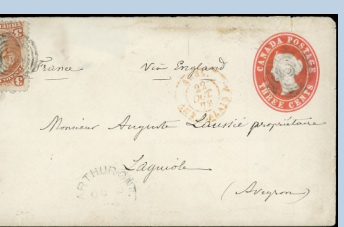 France Via England
CANADA POSTAGE
THREE CENTS
Monsieur Auguste Laussié propriétaire
Laguiole
(Aveyron)